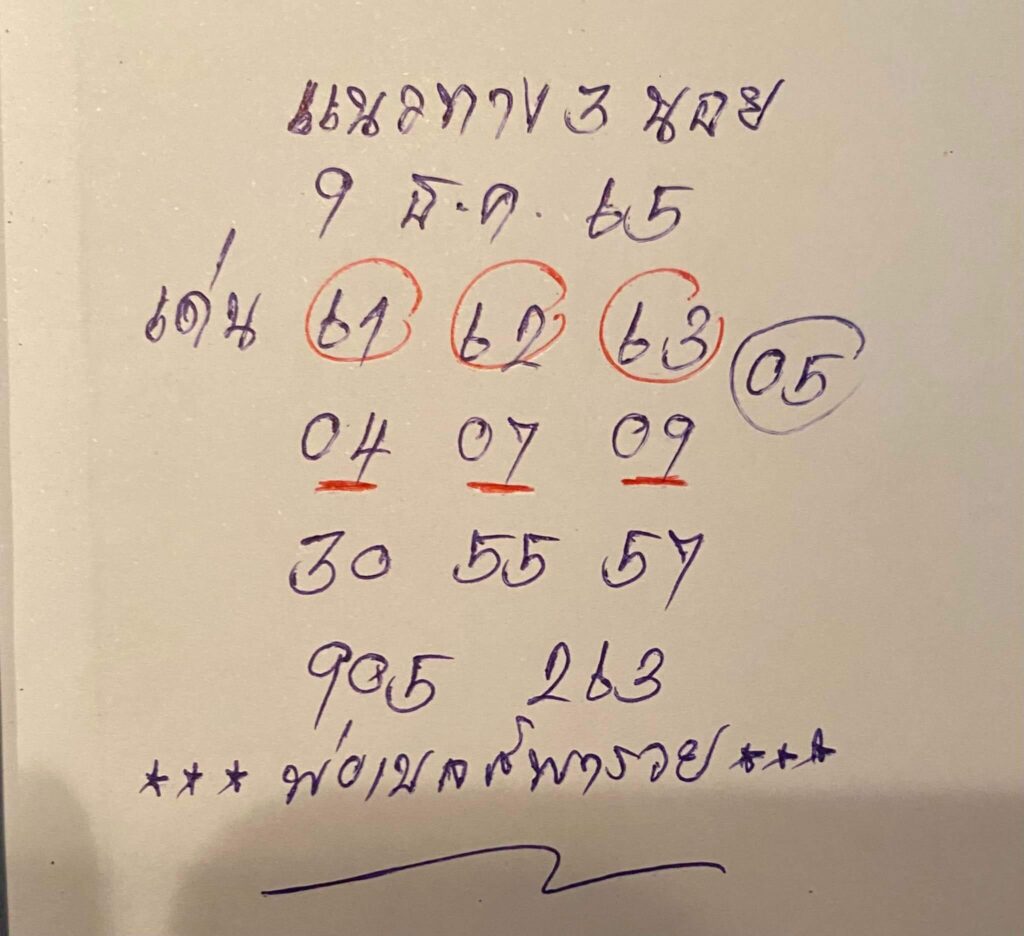 แนวทาง 3 นอย
9 ธ.ค. 65
เด่น 61 62 63 05
04 07 09
30 55 57
905 263
*** พ่อเบลล์พารวย ***